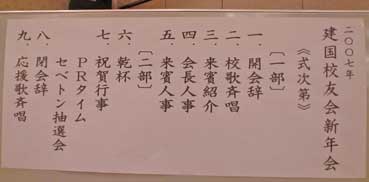 二〇〇七年
建国校友会新年会
《式次第》
〔一部〕
一．開会辞
二．校歌斉唱
三．来賓紹介
四．会長人事
五．来賓人事
〔二部〕
六．乾杯
七．祝賀行事
ＰＲタイム
セベトン抽選会
八．閉会辞
九．応援歌斉唱